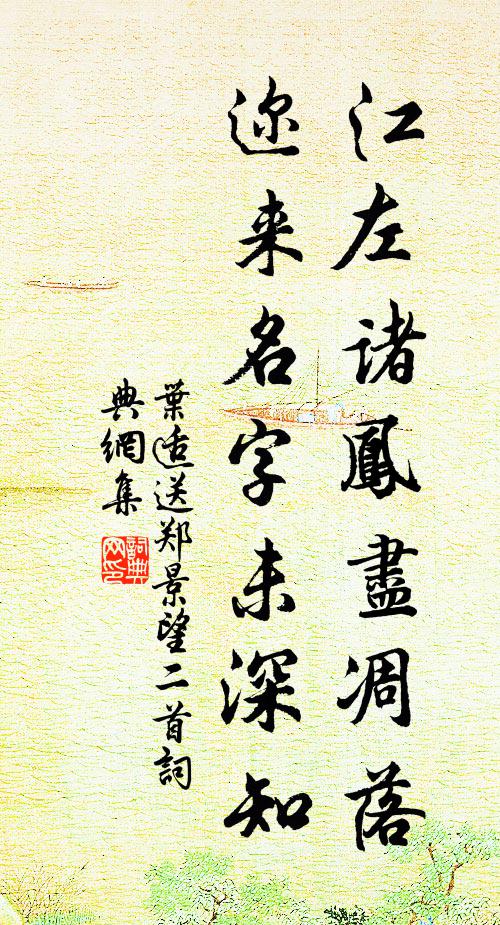 江左诸鳳盡凋落
迩来名字未深知
葉適送郑景望二首詞
典網集
詞典
网印